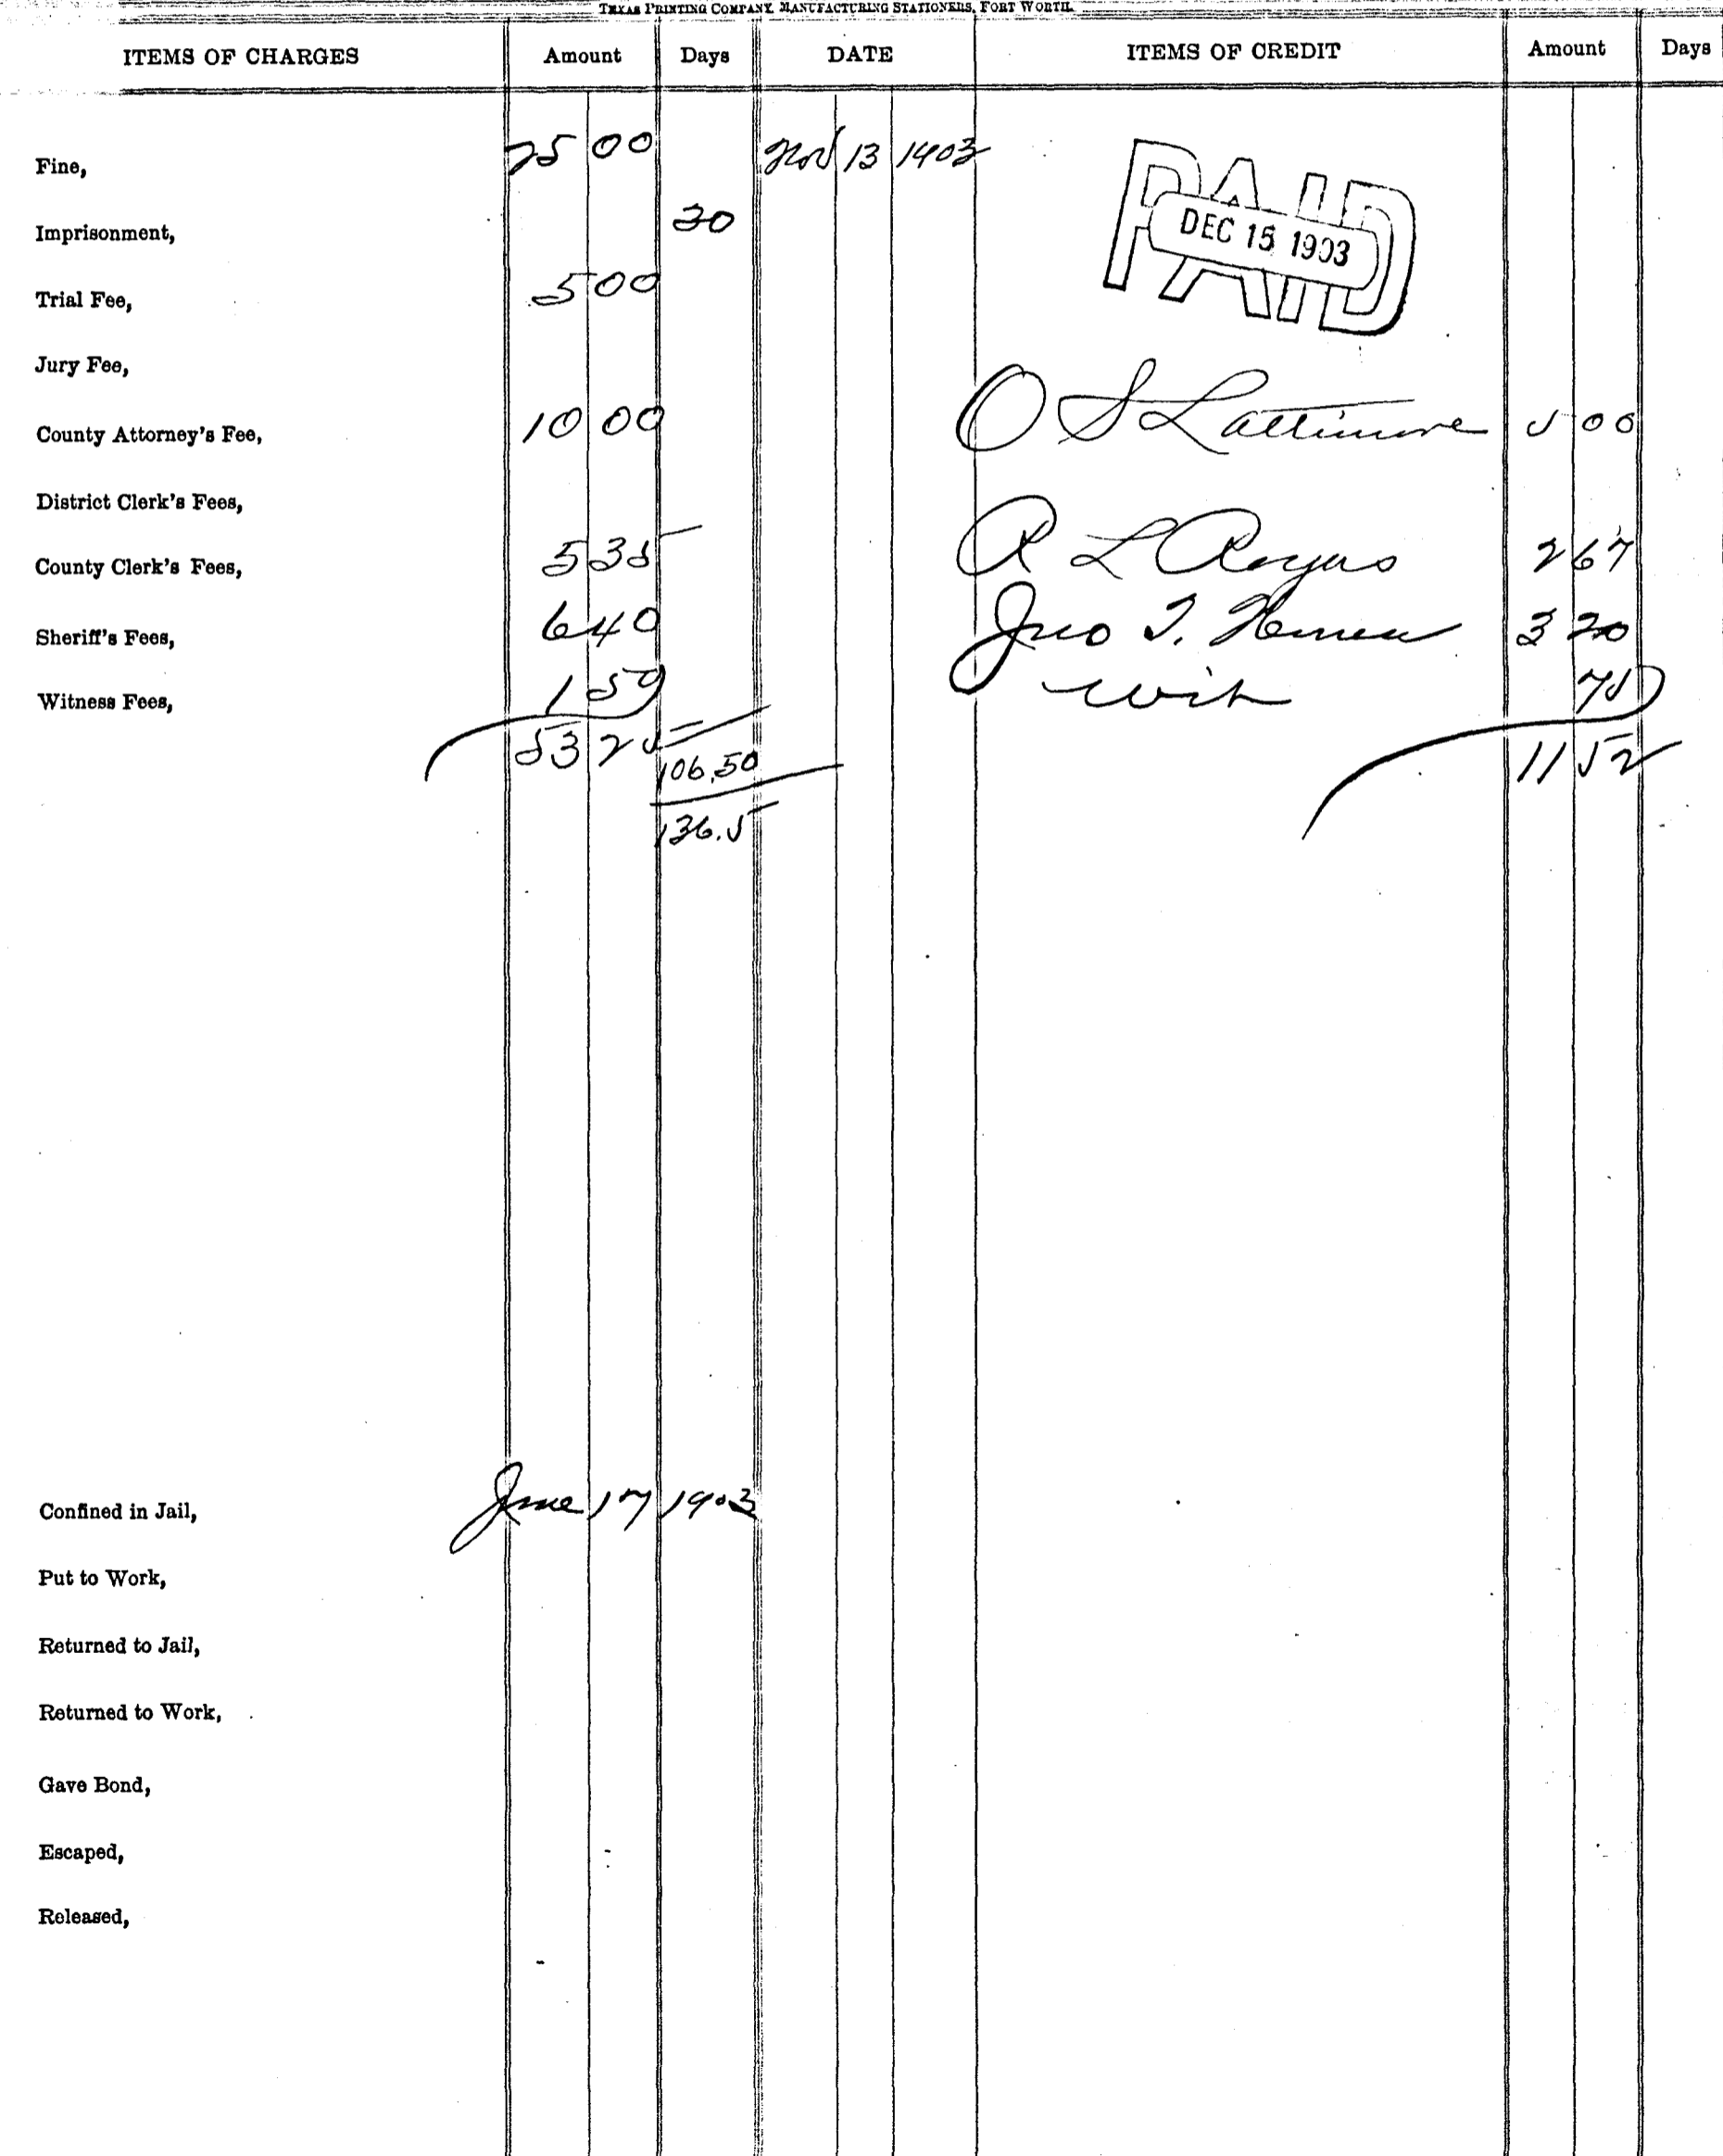 TEXAS PRINTING COMPANY, MANUFACTURING STATIONERS, FORT WORTH.
ITEMS OF CHARGES Amount Days DATE ITEMS OF CREDIT Amount Days
Fine, 25 00 Nov 13 1903
PAID
DEC 15 1903
Imprisonment, 30
Trial Fee, 5 00
Jury Fee,
County Attorney's Fee, 10 00 O S Lattimore 5 00
District Clerk's Fees,
County Clerk's Fees, 5 35 R L Rogers 2 67
Sheriff's Fees, 6 40 Jno T. Honea 3 20
Witness Fees, 1 50 wit 75
53 25 106.50 11 52
136.5
Confined in Jail, June 17 1903
Put to Work,
Returned to Jail,
Returned to Work,
Gave Bond,
Escaped,
Released,